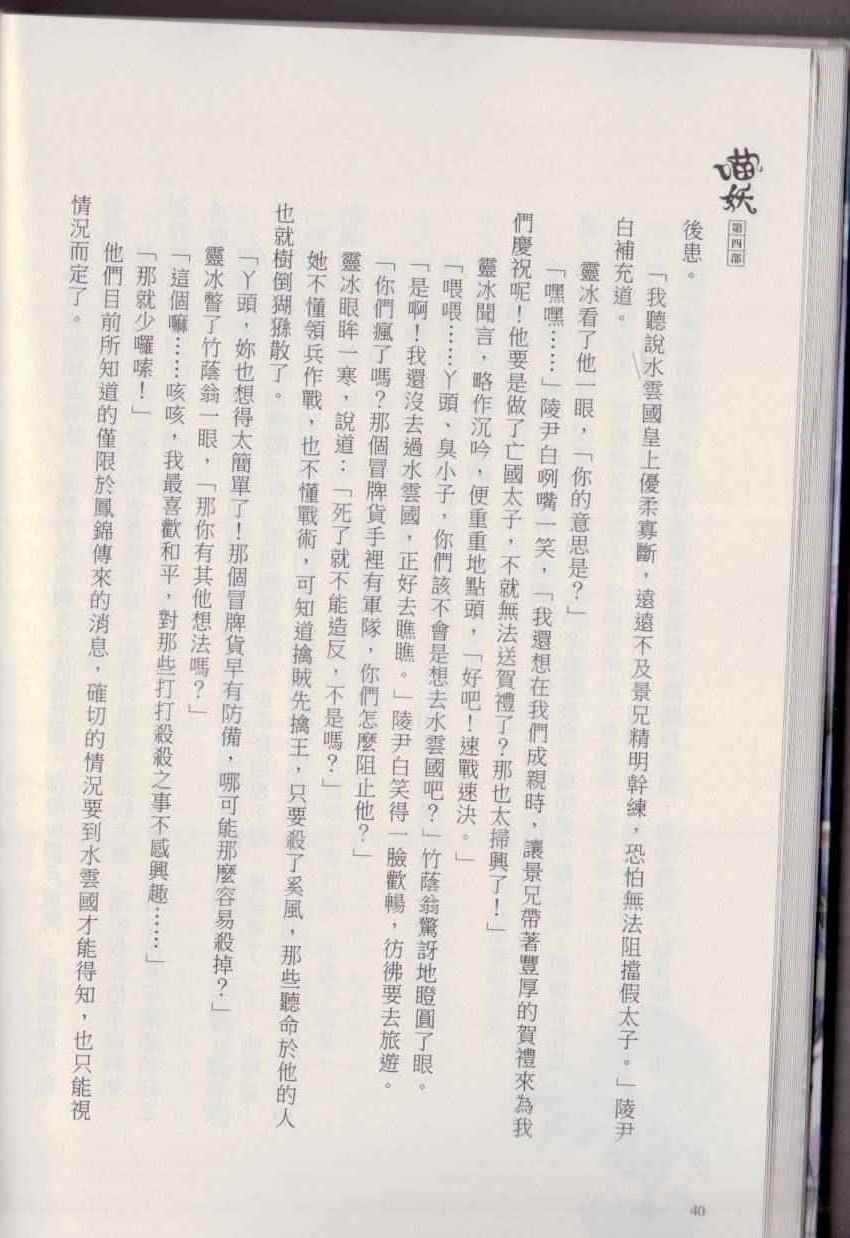 喵妖
第四部
後患。
「我聽說水雲國皇上優柔寡斷，遠遠不及景兄精明幹練，恐怕無法阻擋假太子。」陵尹
白補充道。
靈冰看了他一眼，「你的意思是？」
「嘿嘿……」陵尹白咧嘴一笑，「我還想在我們成親時，讓景兄帶著豐厚的賀禮來為我
們慶祝呢！他要是做了亡國太子，不就無法送賀禮了？那也太掃興了！」
靈冰聞言，略作沉吟，便重重地點頭，「好吧！速戰速決。」
「喂喂……丫頭、臭小子，你們該不會是想去水雲國吧？」竹蔭翁驚訝地瞪圓了眼。
「是啊！我還沒去過水雲國，正好去瞧瞧。」陵尹白笑得一臉歡暢，彷彿要去旅遊。
「你們瘋了嗎？那個冒牌貨手裡有軍隊，你們怎麼阻止他？」
靈冰眼眸一寒，說道：「死了就不能造反，不是嗎？」
她不懂領兵作戰，也不懂戰術，可知道擒賊先擒王，只要殺了奚風，那些聽命於他的人
也就樹倒猢猻散了。
「丫頭，妳也想得太簡單了！那個冒牌貨早有防備，哪可能那麼容易殺掉？」
靈冰瞥了竹蔭翁一眼，「那你有其他想法嗎？」
「這個嘛……咳咳，我最喜歡和平，對那些打打殺殺之事不感興趣……」
「那就少囉嗦！」
他們目前所知道的僅限於鳳錦傳來的消息，確切的情況要到水雲國才能得知，也只能視
情況而定了。
40